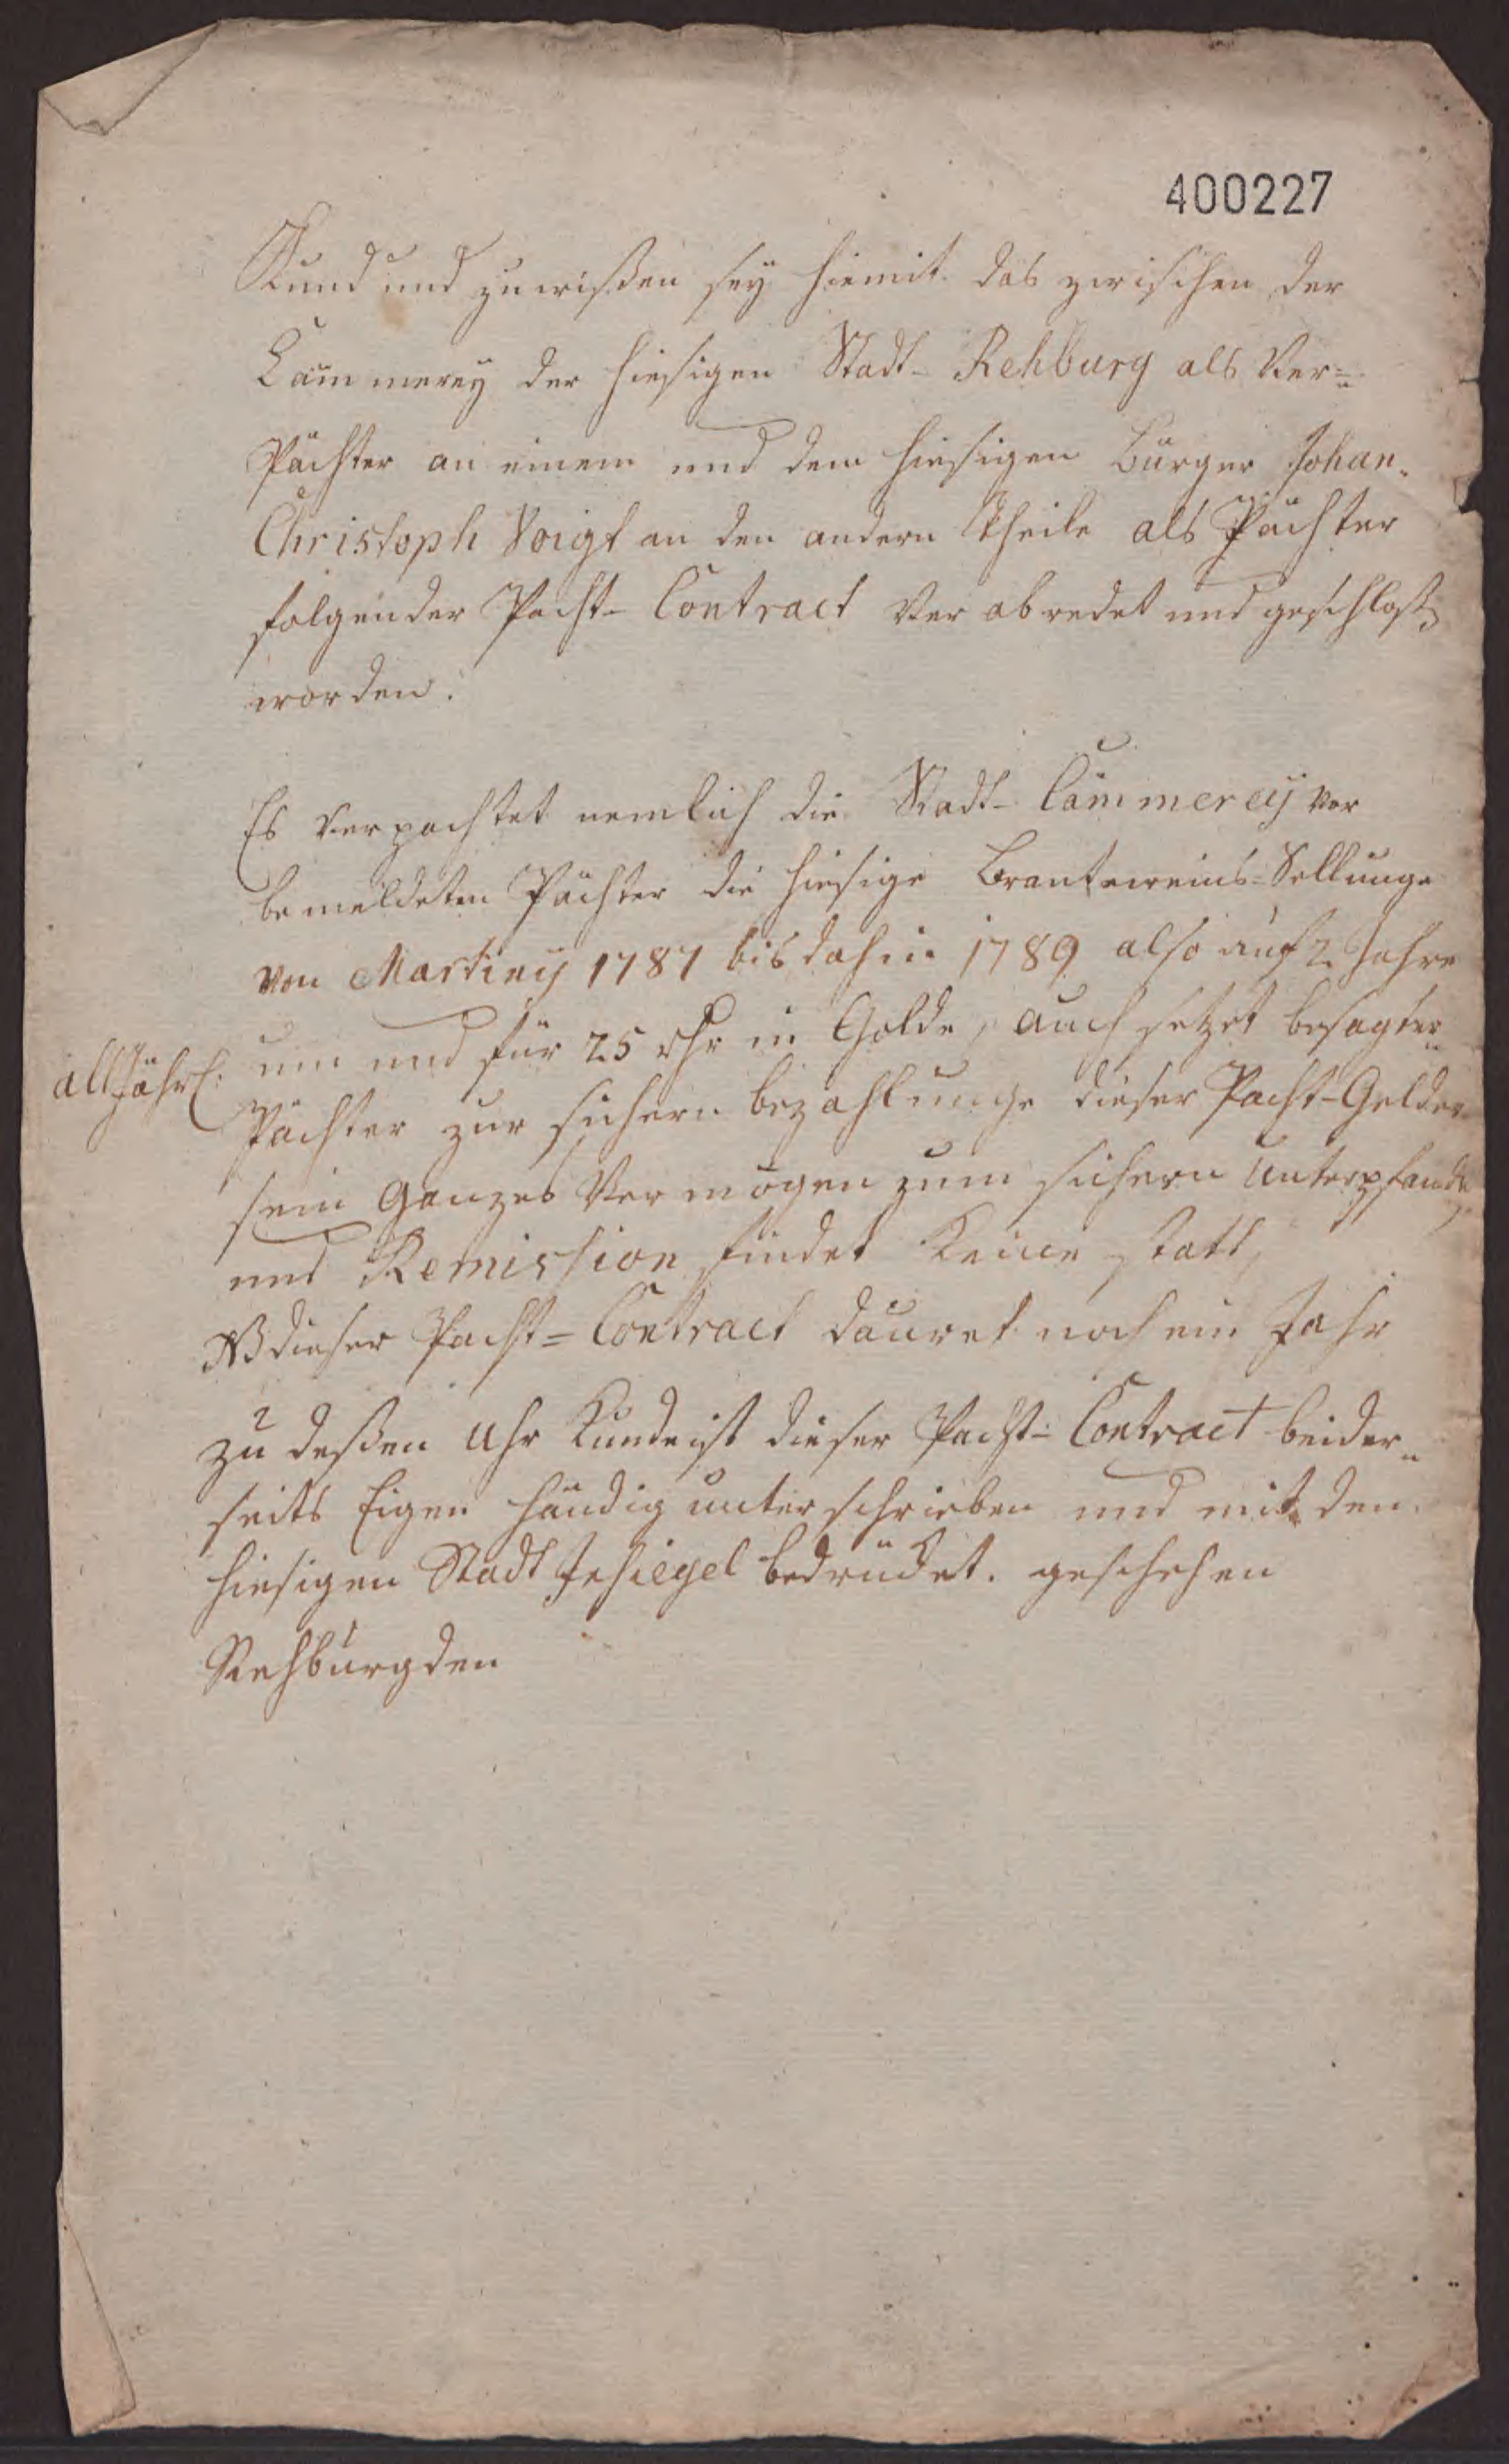 400227
Kund und zu wißen sey hiemit das zwischen der
Cammerey der hiesigen Stadt- Rehburg als Ver=
Pächter an einem und dem hiesigen Bürger Johan-
Christoph Voigt an den andern Theile als Pächter
folgender Pacht- Contract Ver abredet und geschloß
worden.
Es Verpachtet nemlich die Stadt- Cämmereij vor
bemeldeten Pächter die hiesige Brantweins-Sellunge
von Martiny 1787 bis dahin 1789 also auf 2 Jahre
allJährl: um und für 25 rthr in Golde, auch setzet besagter
Pächter zur sichern bezahlunge dieser Pacht-Gelder
sein Ganzes Vermögen zum sichern Unterpfande
und Remission findet Keine statt,
NB dieser Pacht= Contract dauret noch ein Jahr
zu deßen Uhr Kunde ist dieser Pacht- Contract beider=
seits Eigen händig unterschrieben und mit den
hiesigen Stadt Insiegel bedrücket. geschehen
Rehburg den